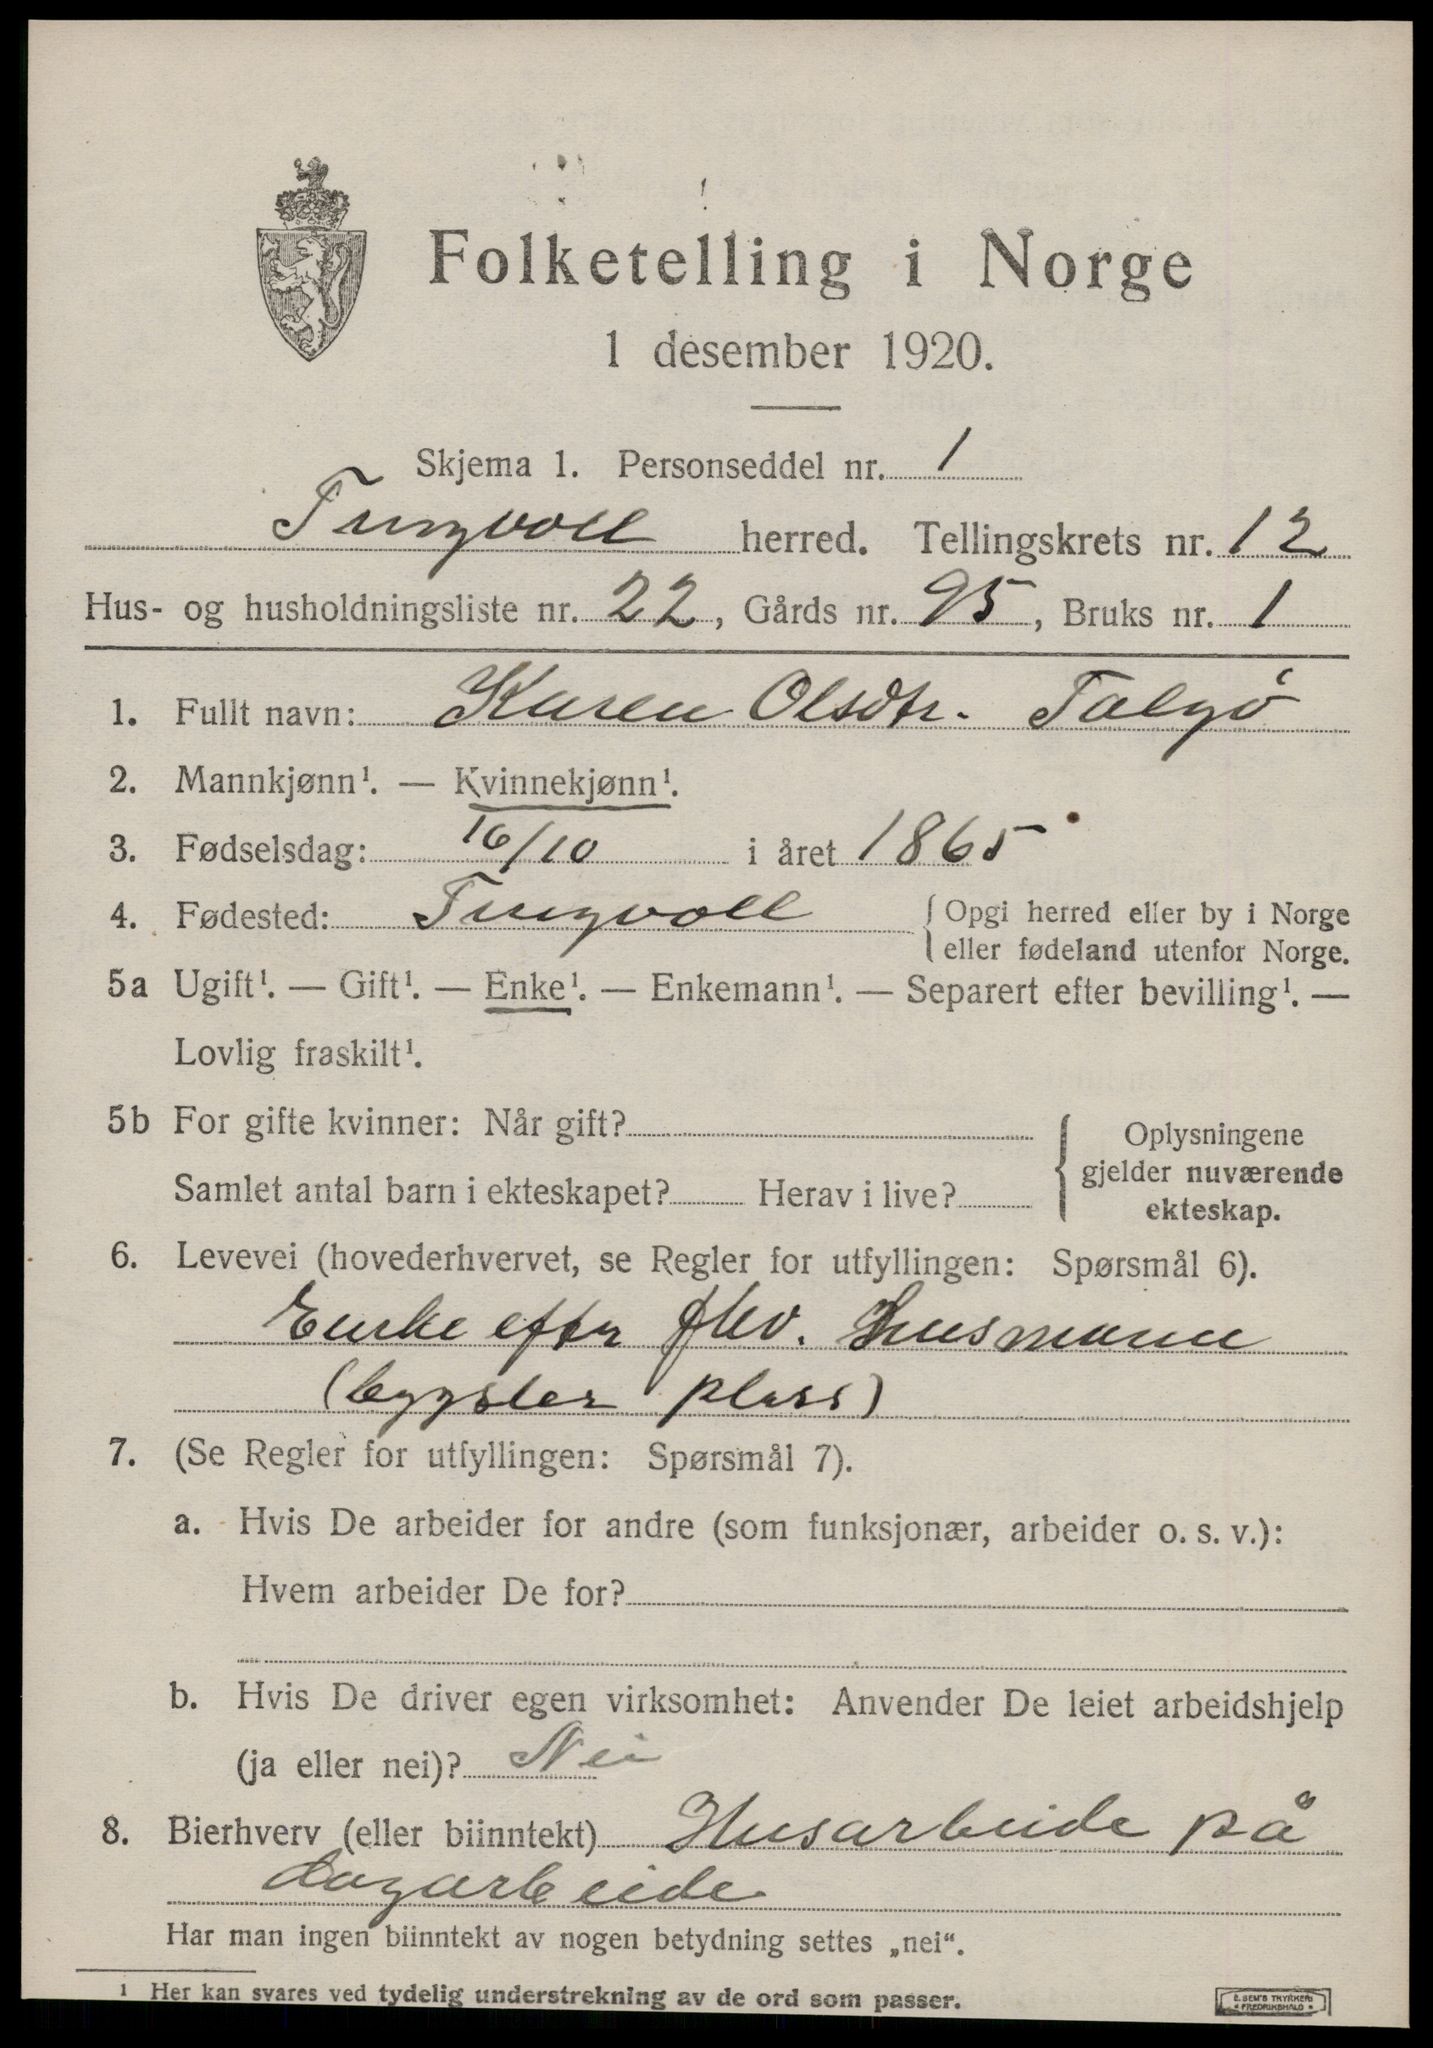 Folketelling i Norge
1 desember 1920.
Skjema 1. Personseddel nr. 1
Tingvoll herred. Tellingskrets nr. 12
Hus- og husholdningsliste nr. 22, Gårds nr. 95, Bruks nr. 1
1. Fullt navn: Karen Olsdtr. Talgø
2. Mannkjønn¹. — Kvinnekjønn¹.
3. Fødselsdag: 16/10 i året 1865
4. Fødested: Tingvoll { Opgi herred eller by i Norge
eller fødeland utenfor Norge.
5a Ugift¹. — Gift¹. — Enke¹. — Enkemann¹. — Separert efter bevilling¹. —
Lovlig fraskilt¹.
5b For gifte kvinner: Når gift?
Samlet antal barn i ekteskapet? Herav i live?
{ Oplysningene
gjelder nuværende
ekteskap.
6. Levevei (hovederhvervet, se Regler for utfyllingen: Spørsmål 6).
Enke efter Husmann
(bygslet plass)
7. (Se Regler for utfyllingen: Spørsmål 7).
a. Hvis De arbeider for andre (som funksjonær, arbeider o. s. v.):
Hvem arbeider De for?
b. Hvis De driver egen virksomhet: Anvender De leiet arbeidshjelp
(ja eller nei)? Nei
8. Bierhverv (eller biinntekt) Husarbeide på
dagarbeide
Har man ingen biinntekt av nogen betydning settes „nei“.
¹ Her kan svares ved tydelig understrekning av de ord som passer.
E. SEM'S TRYKKERI
FREDRIKSHALD